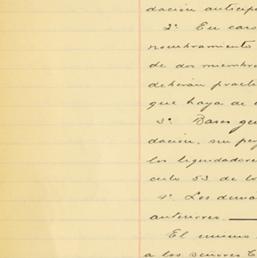 dación anticip
2º En cas
nombramiento
de dos miembr
deberán pract
que haya de
3º Bases ge
dación, su pe
los liquidadore
culo 53 de lo
4º Los dema
anteriores.
El mismo
a los señores